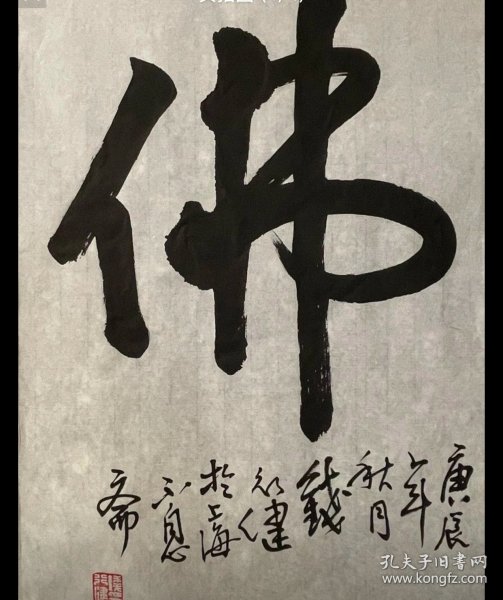 佛
庚辰
年
秋月
钱
行健
於上海
不息
斋
孔夫子旧书网
www.kongfz.com